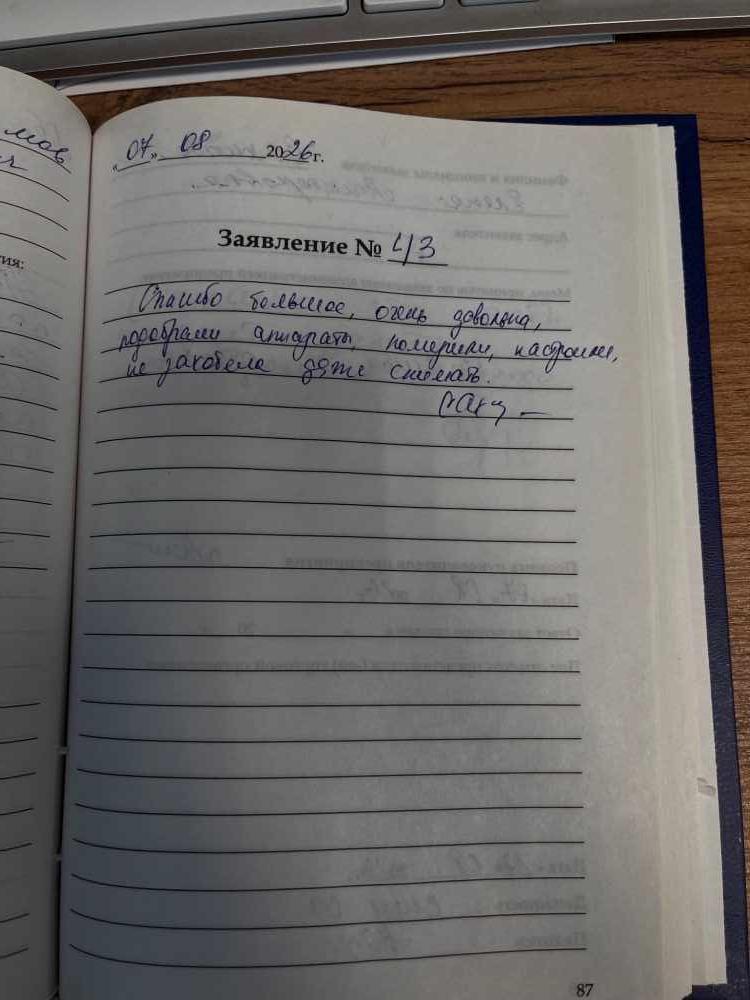 мов
тия:
"07" 08 2026 г.
Заявление № 43
Спасибо большое, очень довольна,
подобрали аппараты, померили, настроили,
не захотела даже снимать.
87